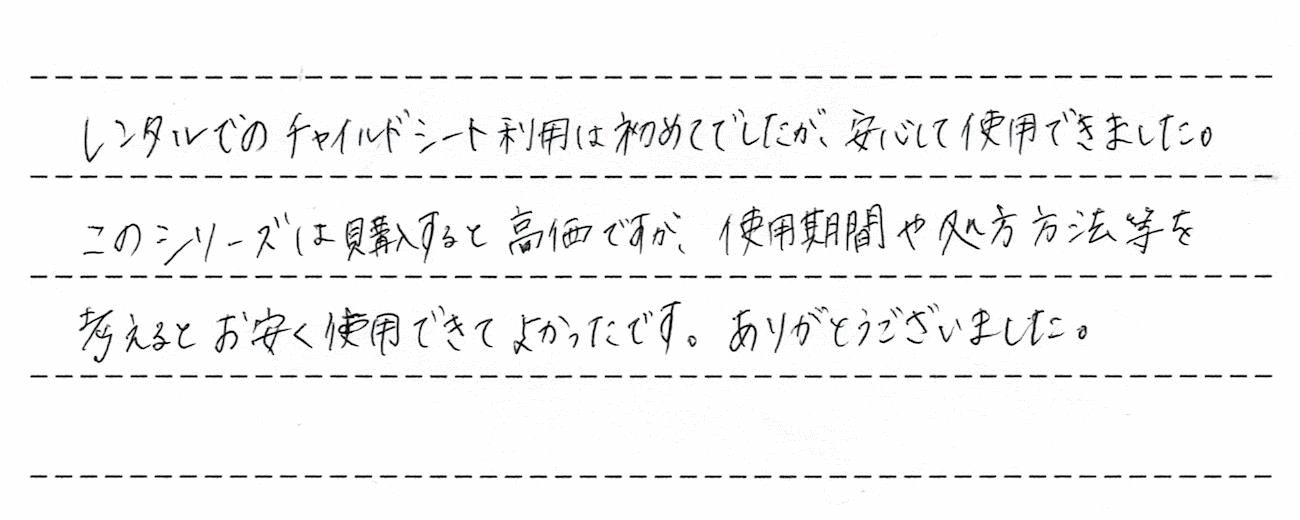 レンタルでのチャイルドシート利用は初めてでしたが、安心して使用できました。
このシリーズは購入すると高価ですが、使用期間や処方方法等を
考えるとお安く使用できてよかったです。ありがとうございました。